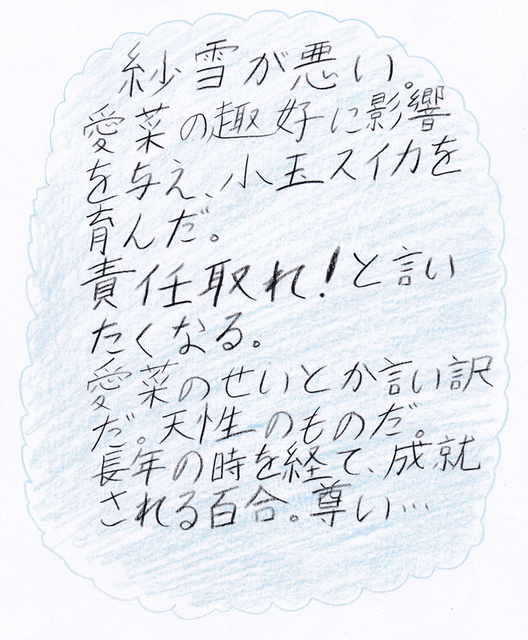 紗雪が悪い。
愛菜の趣好に影響
を与え、小玉スイカを
育んだ。
責任取れ!と言い
たくなる。
愛菜のせいとか言い訳
だ。天性のものだ。
長年の時を経て、成就
される百合。尊い…